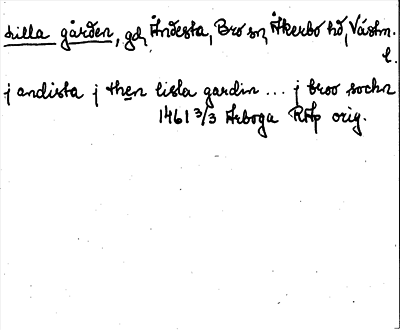 Lilla gården, gd, Åndesta, Bro sn, Åkerbo hd, Västm.
l.
j andista j then litla gardin ... j broo sockn
1461 3/3 Arboga RAp orig.